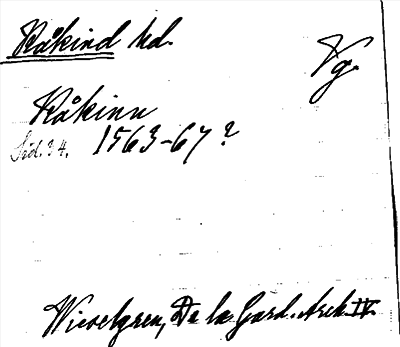 Kåkind hd.
Vg.
Kåkinn
Sid. 34. 1563-67?
Wieselgren, De la Gard. Ark. IV.